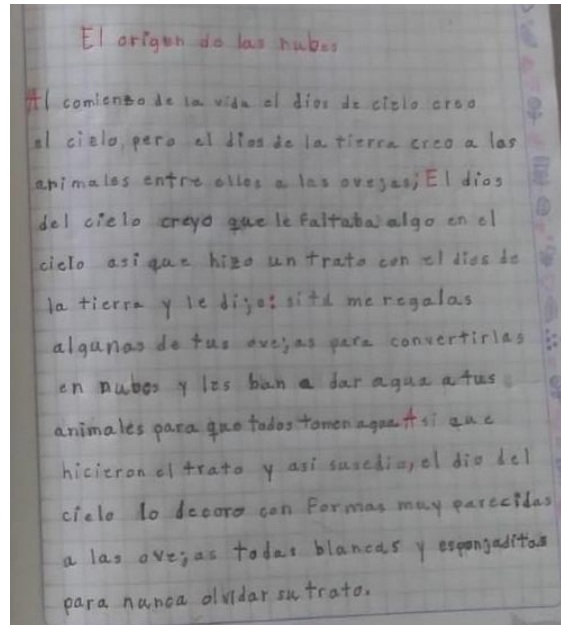 El origen de las nubes
Al comienso de la vida el dios de cielo creo
el cielo, pero el dios de la tierra creo a los
animales entre ellos a las ovejas; El dios
del cielo creyo que le faltaba algo en el
cielo asi que hizo un trato con el dios de
la tierra y le dijo: si tú me regalas
algunas de tus ovejas para convertirlas
en nubes y les ban a dar agua a tus
animales para que todos tomen agua Asi que
hicieron el trato y asi susedio, el dio del
cielo lo decoro con formas muy parecidas
a las ovejas todas blancas y esponjaditas
para nunca olvidar su trato.